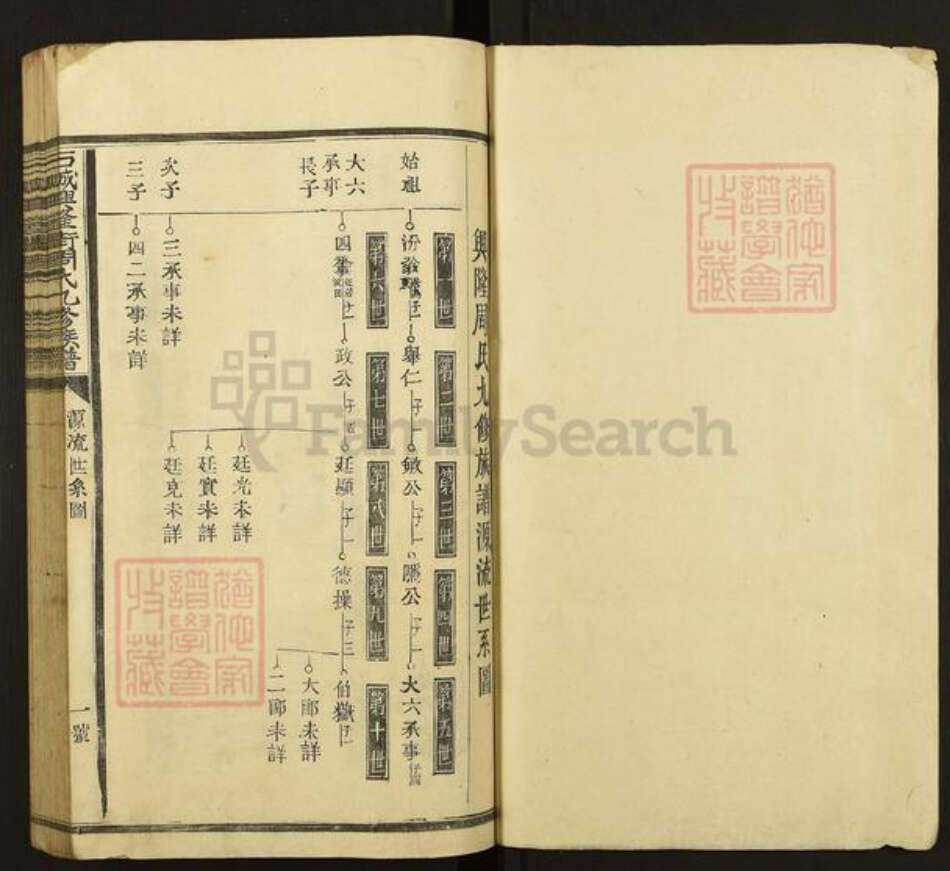 興隆周氏九修族譜源流世系圖
第一世
第二世
第三世
第四世
第五世
始祖
汾
舉仁
子一
敏公
子一
隱公
子一
大六承事
第六世
第七世
第八世
第九世
第十世
大六
承事
長子
四
政公
廷顯
子一
德操
子三
伯嶽
子一
廷光未詳
廷實未詳
廷克未詳
大郎未詳
二郎未詳
次子
三承事未詳
三子
四二承事未詳
周氏九修族譜
源流世系圖
一號
譜學會
收藏
譜學會
收藏
FamilySearch